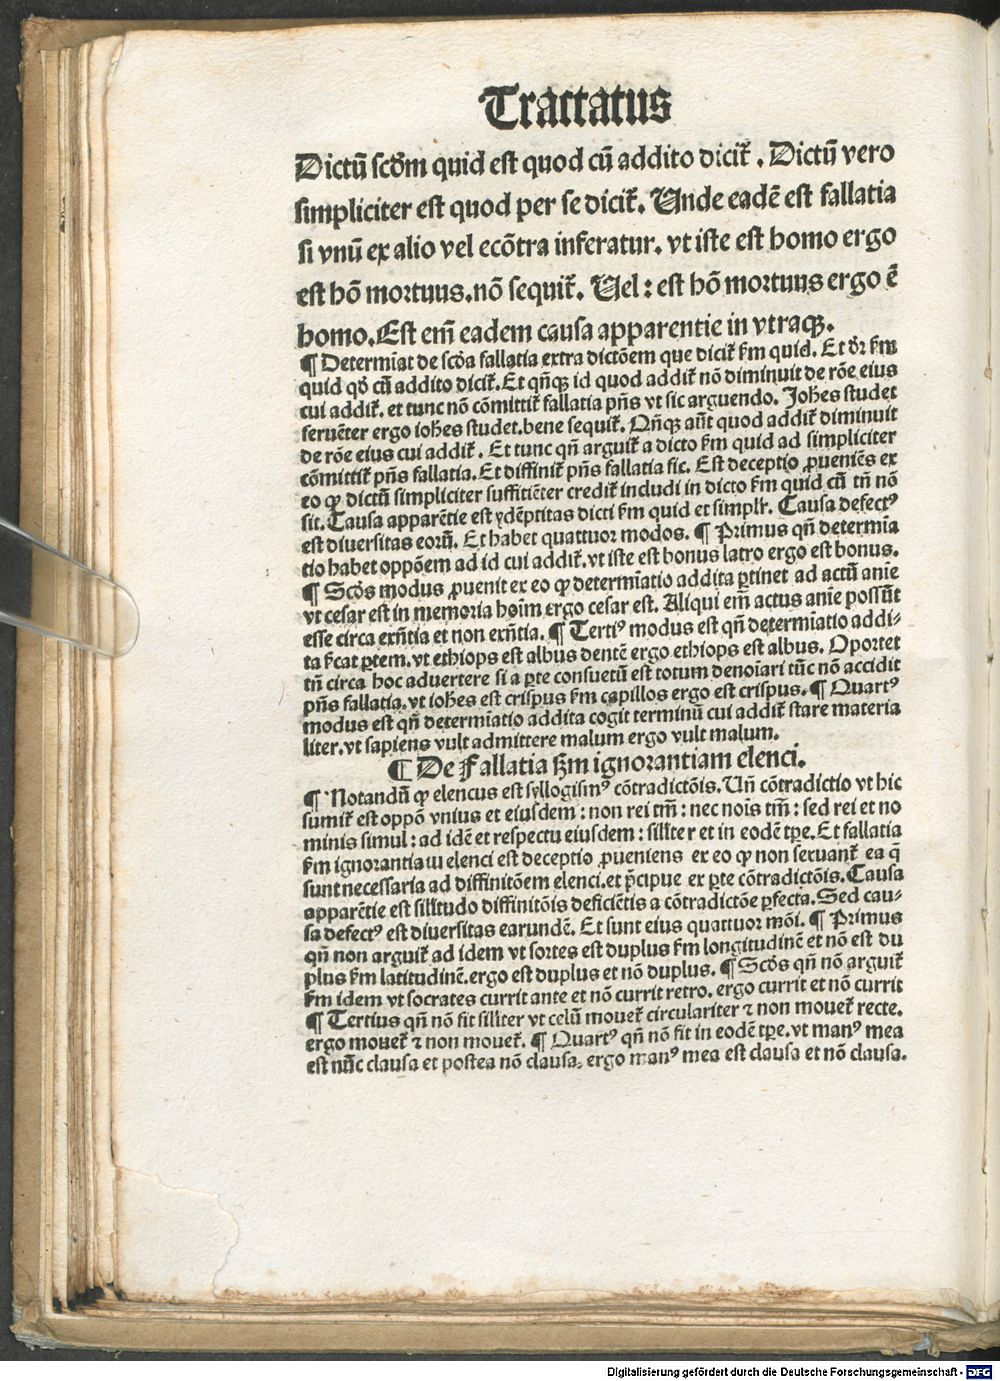 Tractatus
Dictū scd̄m quid est quod cū addito dicit̄. Dictū vero
simpliciter est quod per se dicit̄. Unde eadē est fallatia
si vnū ex alio vel ecōtra inferatur. vt iste est homo ergo
est hō mortuus. nō sequit̄. Uel: est hō mortuus ergo ē
homo. Est em̄ eadem causa apparentie in vtraqꝫ.
¶ Determīat de scd̄a fallatia extra dictōem que dicit̄ ẜm quid. Et dr̄ ẜm
quid qd̄ cū addito dicit̄. Et qn̄qꝫ id quod addit̄ nō diminuit de rōe eius
cui addit̄. et tunc nō cōmittit̄ fallatia pn̄s vt sic arguendo. Joħes studet
feruēter ergo ioħes studet. bene sequit̄. Qn̄qꝫ aūt quod addit̄ diminuit
de rōe eius cui addit̄. Et tunc qn̄ arguit̄ a dicto ẜm quid ad simpliciter
cōmittit̄ pn̄s fallatia. Et diffinit̄ pn̄s fallatia sic. Est deceptio ꝓueniēs ex
eo ꝙ dictū simpliciter suffitiēter credit̄ includi in dicto ẜm quid cū tn̄ nō
sit. Causa apparētie est ydēptitas dicti ẜm quid et simplr̄. Causa defectꝰ
est diuersitas eorū. Et habet quattuor modos. ¶ Primus qn̄ determīa
tio habet oppōem ad id cui addit̄. vt iste est bonus latro ergo est bonus.
¶ Scd̄s modus ꝓuenit ex eo ꝙ determīatio addita ꝑtinet ad actū anīe
vt cesar est in memoria hoīm ergo cesar est. Aliqui em̄ actus anīe possūt
esse circa exn̄tia et non exn̄tia. ¶ Tertiꝰ modus est qn̄ determīatio addi-
ta ẜcat ꝑtem. vt ethiops est albus dentē ergo ethiops est albus. Oportet
tn̄ circa hoc aduertere si a ꝑte consuetū est totum denoīari tūc nō accidit
pn̄s fallatia. vt ioħes est crispus ẜm capillos ergo est crispus. ¶ Quartꝰ
modus est qn̄ determīatio addita cogit terminū cui addit̄ stare materia
liter. vt sapiens vult admittere malum ergo vult malum.
¶ De Fallatia ẜm ignorantiam elenci.
¶ Notandū ꝙ elencus est syllogismꝰ cōtradictōis. Un̄ cōtradictio vt hic
sumit̄ est oppō vnius et eiusdem: non rei tm̄: nec noīs tm̄: sed rei et no
minis simul: ad idē et respectu eiusdem: siliter et in eodē tꝑe. Et fallatia
ẜm ignorantiam elenci est deceptio ꝓueniens ex eo ꝙ non seruant̄ ea q̄
sunt necessaria ad diffinitōem elenci. et p̄cipue ex ꝑte cōtradictōis. Causa
apparētie est silitudo diffinitōis deficiētis a cōtradictōe ꝑfecta. Sed cau-
sa defectꝰ est diuersitas earundē. Et sunt eius quattuor mōi. ¶ Primus
qn̄ non arguit̄ ad idem vt sortes est duplus ẜm longitudinē et nō est du
plus ẜm latitudinē. ergo est duplus et nō duplus. ¶ Scd̄s qn̄ nō arguit̄
ẜm idem vt socrates currit ante et nō currit retro. ergo currit et nō currit
¶ Tertius qn̄ nō fit siliter vt celū mouet̄ circulariter ⁊ non mouet̄ recte.
ergo mouet̄ ⁊ non mouet̄. ¶ Quartꝰ qn̄ nō fit in eodē tꝑe. vt manꝰ mea
est nūc clausa et postea nō clausa. ergo manꝰ mea est clausa et nō clausa.
Digitalisierung gefördert durch die Deutsche Forschungsgemeinschaft - DFG